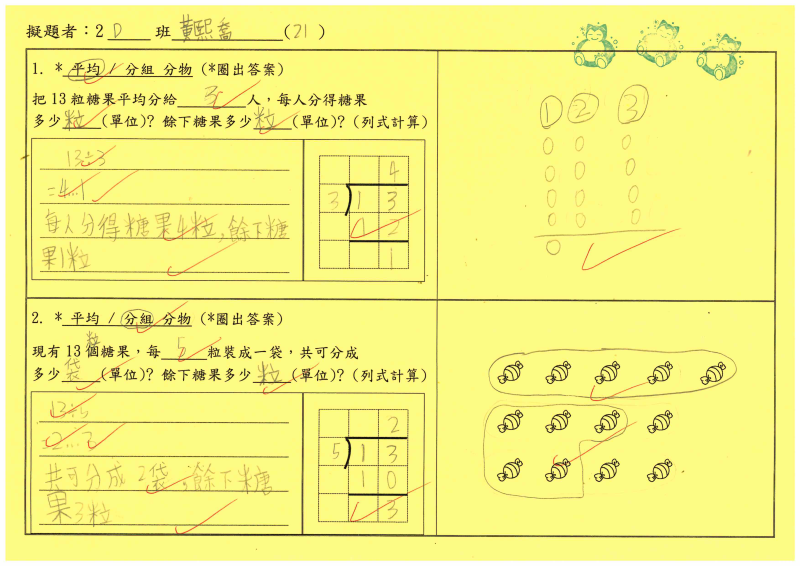 擬題者：2 D 班 黃熙喬 (21)
1. * 平均 / 分組 分物 (*圈出答案)
把 13 粒糖果平均分給 3 人，每人分得糖果
多少 粒 (單位)? 餘下糖果多少 粒 (單位)? (列式計算)
13÷3
=4...1
每人分得糖果4粒,餘下糖
果1粒
4
3 1 3
1 2
1
① ② ③
2. * 平均 / 分組 分物 (*圈出答案)
粒
現有 13 個糖果，每 5 粒裝成一袋，共可分成
多少 袋 (單位)? 餘下糖果多少 粒 (單位)? (列式計算)
13÷5
=2...3
共可分成 2袋,餘下糖
果3粒
2
5 1 3
1 0
3